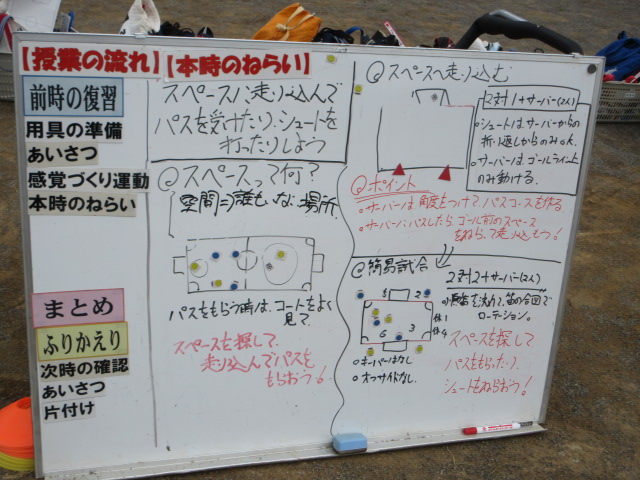 【授業の流れ】
前時の復習
用具の準備
あいさつ
感覚づくり運動
本時のねらい
まとめ
ふりかえり
次時の確認
あいさつ
片付け
【本時のねらい】
スペースへ走り込んで
パスを受けたり、シュートを
打ったりしよう
◎スペースって何？
空間⇒誰もいない場所
パスをもらう時は、コートをよく
見て
スペースを探して、
走り込んでパスを
もらおう！
◎スペースへ走り込む
2対1+サーバー(2人)
○シュートは、サーバーからの
折り返しからのみOK
○サーバーはゴールライン上
のみ動ける。
◎ポイント
○サーバーは角度をつけてパスコースを作る
○サーバーにパスしたら、ゴール前のスペース
をねらって走り込もう！
◎簡易試合
2対2+サーバー(2人)
ローテーション。
5
2
1
3
6
4
○キーパーはなし
○オフサイドなし
スペースを探して
パスをもらったり、
シュートをねらおう！